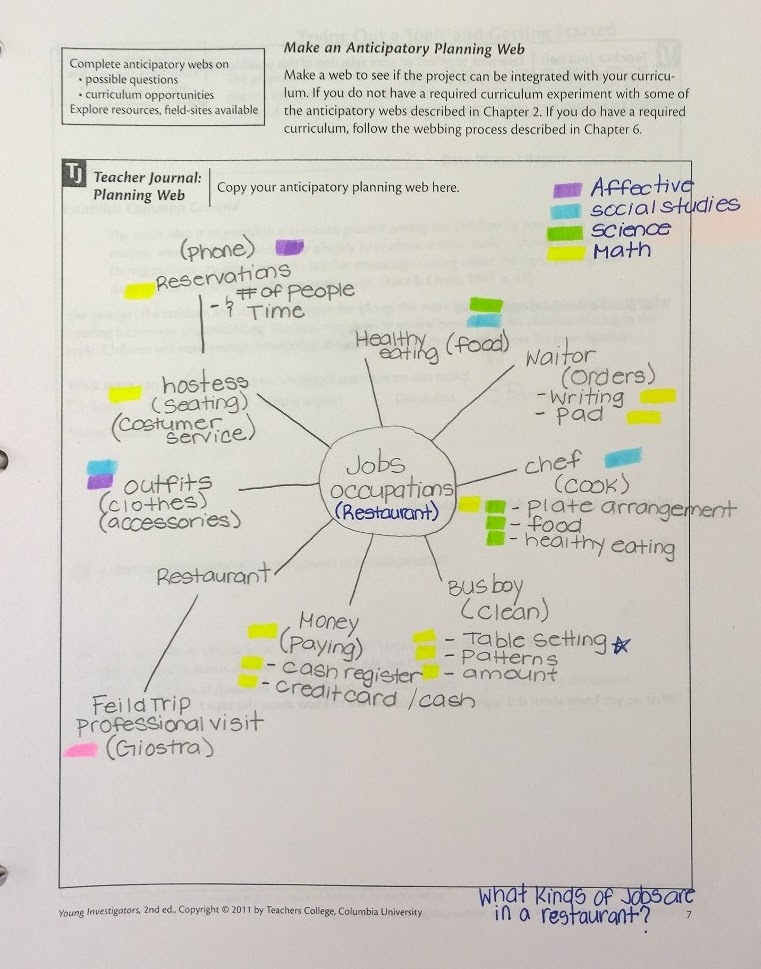 Make an Anticipatory Planning Web
Complete anticipatory webs on
• possible questions
• curriculum opportunities
Explore resources, field-sites available
Make a web to see if the project can be integrated with your curricu-
lum. If you do not have a required curriculum experiment with some of
the anticipatory webs described in Chapter 2. If you do have a required
curriculum, follow the webbing process described in Chapter 6.
TJ
Teacher Journal:
Planning Web
Copy your anticipatory planning web here.
Affective
social studies
science
Math
(phone)
Reservations
- ? # of people
Time
Healthy
eating (food)
Waitor
(orders)
- Writing
- Pad
hostess
(seating)
(costumer
service)
Jobs
occupations
(Restaurant)
chef
(cook)
- plate arrangement
- food
- healthy eating
outfits
(clothes)
(accessories)
Restaurant
Feild Trip
Professional visit
(Giostra)
Money
(Paying)
- cash register
- credit card / cash
Bus boy
(clean)
- Table setting
- Patterns
- amount
What kinds of Jobs are
in a restaurant?
Young Investigators, 2nd ed., Copyright © 2011 by Teachers College, Columbia University
7